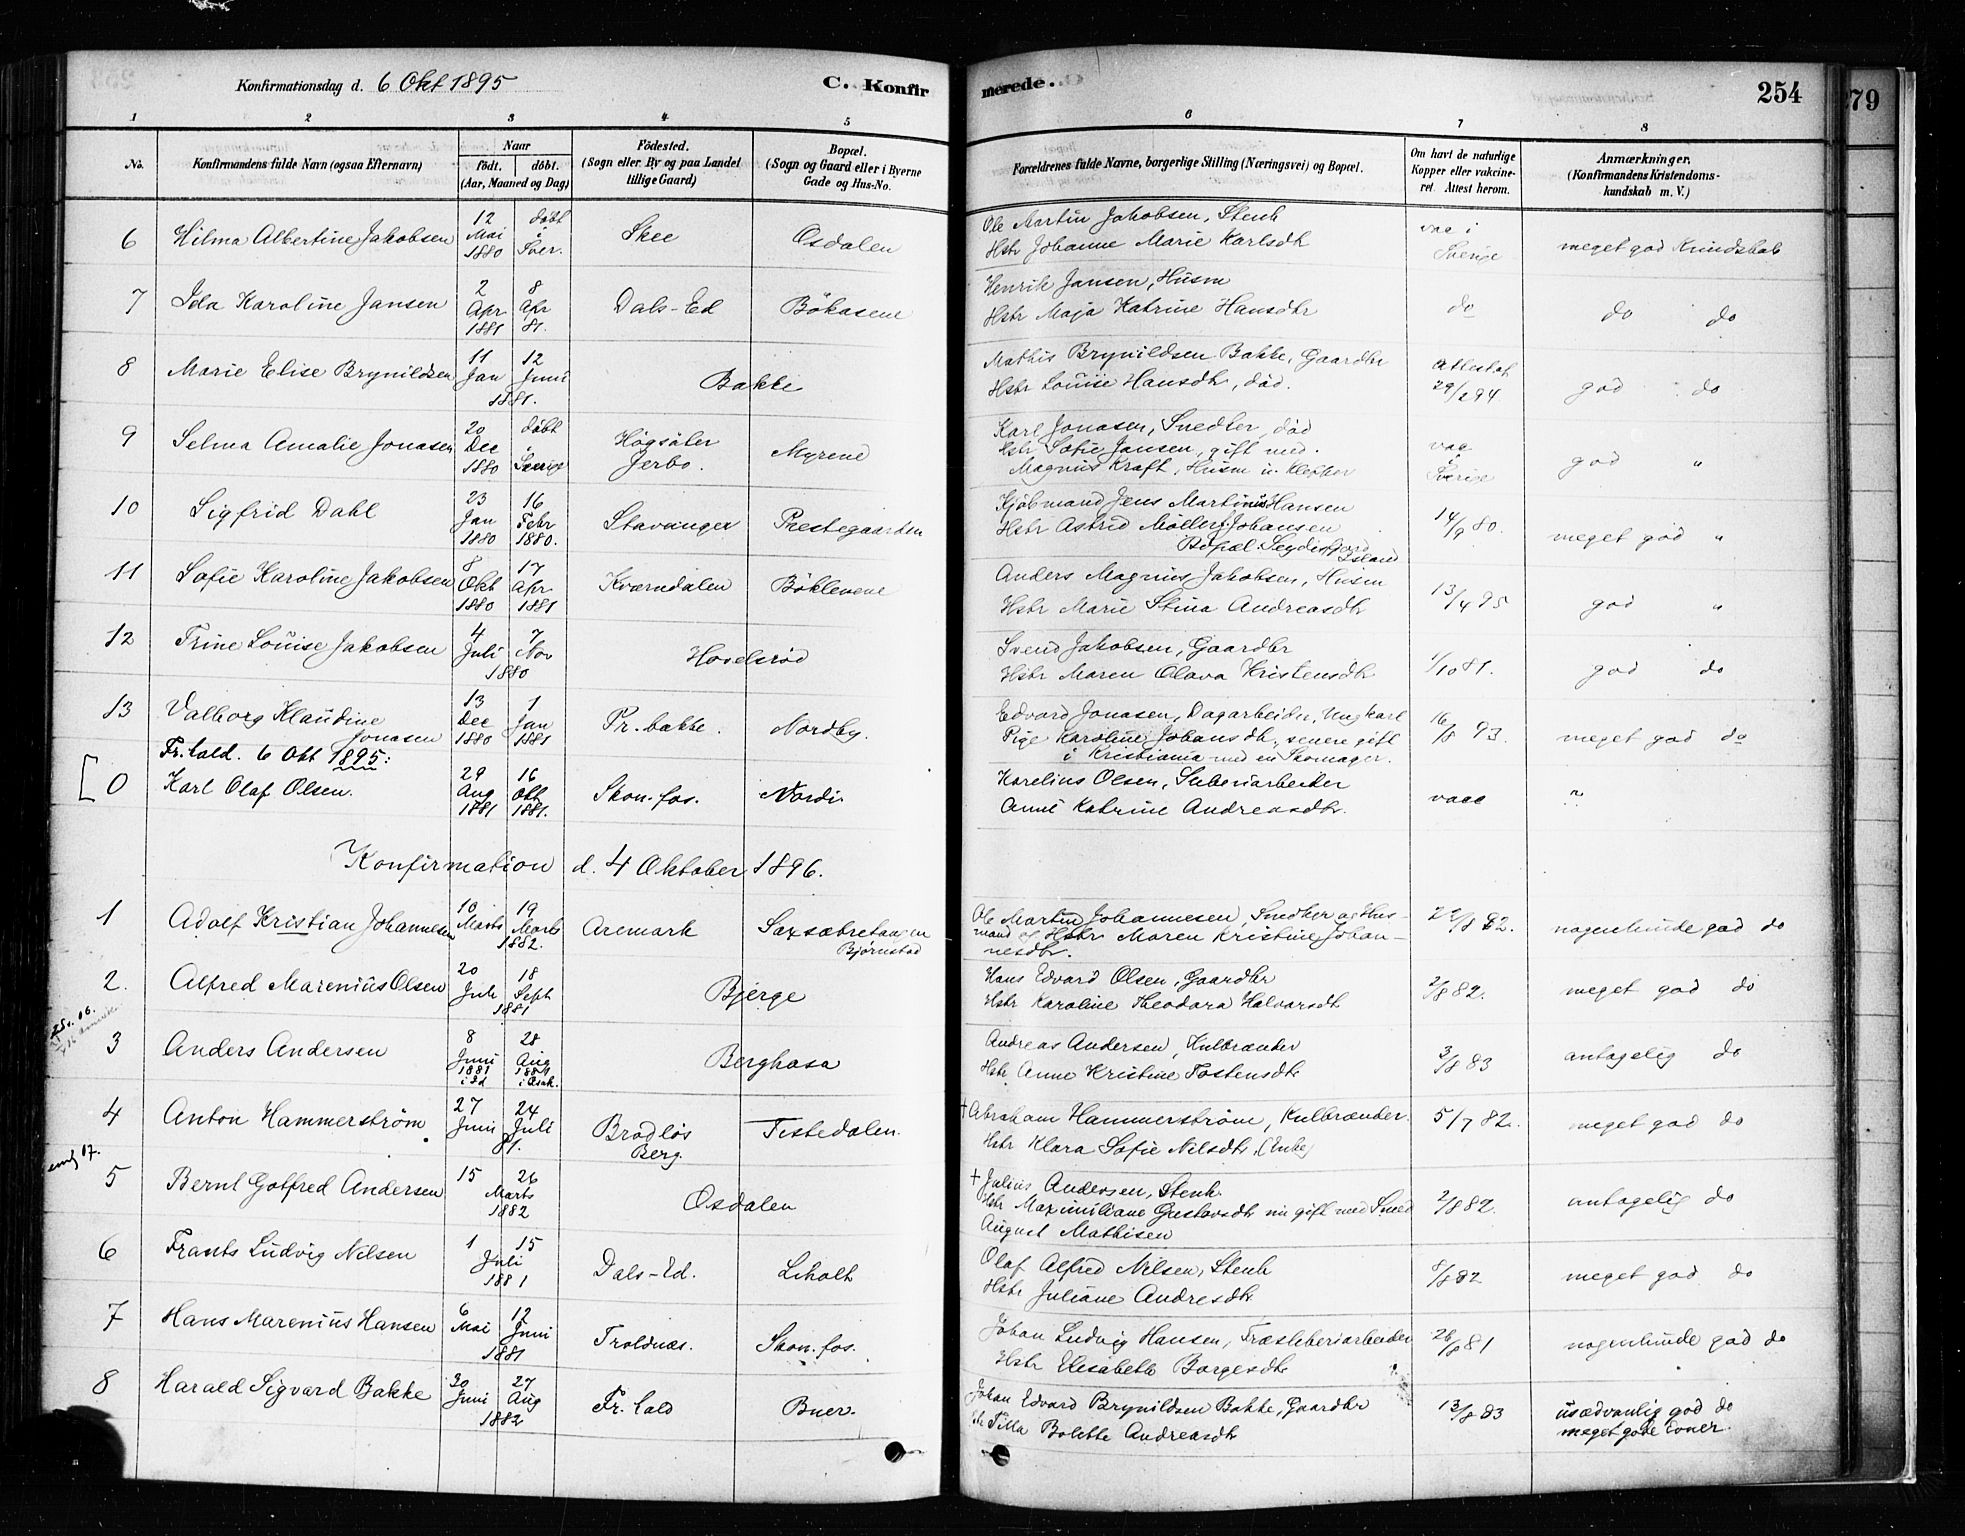 Konfirmationsdag d. 6 Okt 1895
C. Konfir
merede.
254
279
1 2 3 4 5 6 7 8
No.
Konfirmandens fulde Navn (ogsaa Efternavn)
Naar
födt. döbt.
(Aar, Maaned og Dag)
Födested.
(Sogn eller By og paa Landet
tillige Gaard)
Bopæl.
(Sogn og Gaard eller i Byerne
Gade og Hus-No.
Forældrenes fulde Navne, borgerlige Stilling (Næringsvei) og Bopæl.
Om havt de naturlige
Kopper eller vakcine-
ret. Attest herom.
Anmærkninger.
(Konfirmandens Kristendoms-
kundskab m. V.)
6 Hilma Albertine Jakobsen 12 Mai 1880 döbt i Sver. Skee Osdalen
Ole Martin Jakobsen, Stenh
Hstr Johanne Marie Karlsdtr
vac i Sverige meget god Kundskab
7 Ida Karoline Jansen 2 Apr 1881 8 Apr 81. Dals-Ed Bökasene
Henrik Jansen, Husm
Hstr Maja Katrine Hansdtr
do do do
8 Marie Elise Brynildsen 11 Jan 12 Juni 1881. Bakke
Mathis Brynildsen Bakke, Gaardbr
Hstr Louise Hansdtr, död.
Attestat 29/294 god do
9 Selma Amalie Jonasen 20 Dec 1880 döbt i Sverige Högsäter Jerbo. Myrene
Karl Jonasen, Snedker, död
Hstr Sofie Jansen, gift med.
Magnus Kraft, Husm u. Klepper
vac i Sverige god "
10 Sigfrid Dahl 23 Jan 1880 16 Febr 1880. Stavanger Prestegaarden
Kjöbmand Jens Martinius Hansen
Hstr Astrid Möller f. Johansen
Bopæl: Seydisfjord Island
14/9 80. meget god "
11 Sofie Karoline Jakobsen 8 Okt 1880 17 Apr 1881 Kværndalen Böklevene
Anders Magnus Jakobsen, Husm
Hstr Marie Stina Andreasdtr
13/4 95 god "
12 Trine Louise Jakobsen 4 Juli 7 Nov 1880 Hovelsröd
Svend Jakobsen, Gaardbr
Hstr Maren Olava Kristensdtr
1/10 81. god do
13 Valborg Klaudine Jonasen 13 Dec 1880 1 Jan 1881 Pr. bakke. Nordby.
Edvard Jonasen, Dagarbeider, Ungkarl
Pige Karoline Johansdtr, senere gift
i Kristiania med en Skomager.
16/8 93. meget god do
Fr. hald. 6 Okt 1895:
0 Karl Olaf Olsen. 29 Aug 1881 16 Okt 1881. Skon. fos. Nordi
Karelius Olsen, Sliberiarbeider
Anne Katrine Andreasdtr.
vacc "
Konfirmation d. 4 Oktober 1896.
1 Adolf Kristian Johannesen 10 Marts 19 Marts 1882. Aremark Saxsæbretangen Björnstad
Ole Martin Johannesen, Snedker og Hus-
mand og Hstr Maren Kristine Johan-
nesdtr.
22/8 82. nogenlunde god do
2. Alfred Marenius Olsen 20 Juli 18 Sept 1881 Bjerge
Hans Edvard Olsen, Gaardbr
Hstr Karoline Theodora Halvorsdtr
2/8 82. meget god do
3 Anders Andersen 8 Juni 1881 i Id 28 Aug 1881 i Asak. Berghasa
Andreas Andersen, Kulbrænder
Hstr Anne Kristine Tostensdtr
3/8 83 antagelig do
4 Anton Hammerström 27 Juni 24 Juli 81. Brödlös Berg. Tistedalen.
† Abraham Hammerström, Kulbrænder.
Hstr Klara Sofie Nilsdtr. (Enke)
5/7 82. meget god do
5 Bernt Gotfred Andersen 15 26 Marts 1882 Osdalen
† Julius Andersen, Stenh.
Hstr Maximiliane Gustavsdtr nu gift med Smed
August Mathisen
2/8 82. antagelig do
6 Frants Ludvig Nilsen 1 15 Juli 1881 Dals-Ed. Liholt
Olaf Alfred Nilsen, Stenh
Hstr Juliane Andresdtr
8/8 82 meget god do
7 Hans Marenius Hansen 6 Mai 12 Juni 1881 Troldnæs. Skon. fos.
Johan Ludvig Hansen, Træsliberiarbeider
Hstr Elisabeth Borgesdtr
26/8 81 nogenlunde god do
8 Harald Sigvard Bakke 30 Juni 27 Aug 1882 Fr. hald Buer.
Johan Edvard Brynildsen Bakke, Gaardbr
Hstr Tilla Bolette Andreasdtr
13/8 83 usædvanlig god do
meget gode Evner.